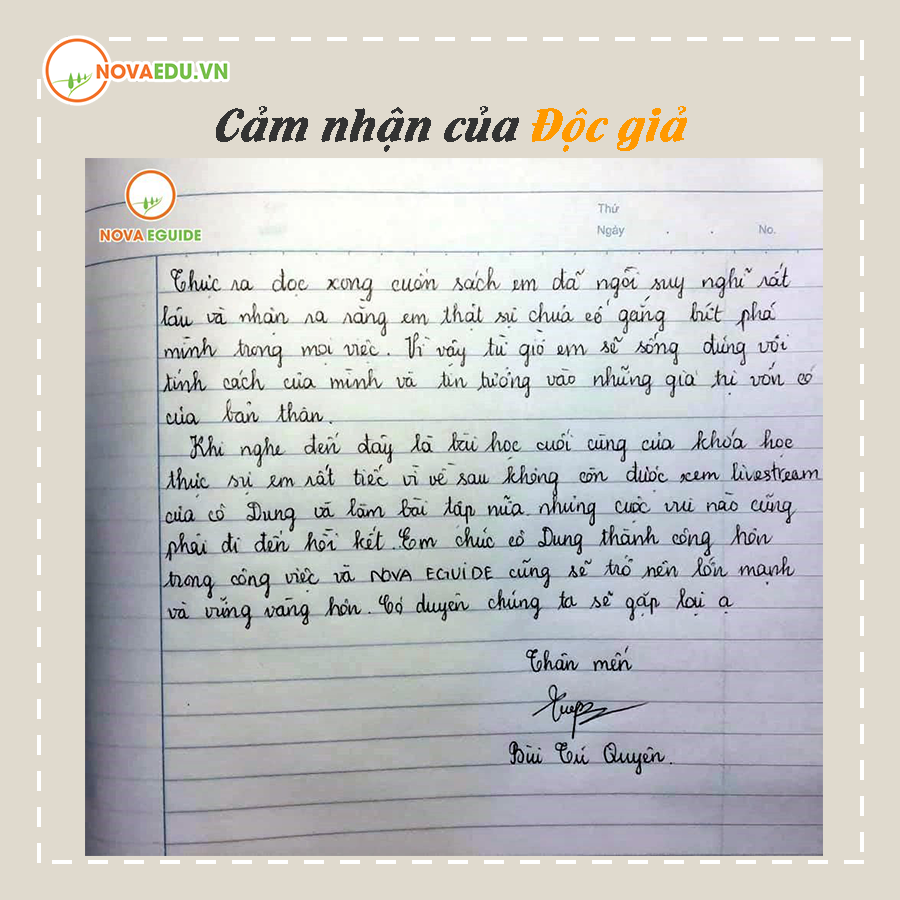 NOVAEDU.VN
Cảm nhận của Độc giả
NOVA EGUIDE
Thứ
Ngày
No.
Thực ra đọc xong cuốn sách em đã ngồi suy nghĩ rất
lâu và nhận ra rằng em thật sự chưa cố gắng bứt phá
mình trong mọi việc. Vì vậy từ giờ em sẽ sống đúng với
tính cách của mình và tin tưởng vào những giá trị vốn có
của bản thân.
Khi nghe đến đây là bài học cuối cùng của khóa học
thực sự em rất tiếc vì về sau không còn được xem livestream
của cô Dung và làm bài tập nữa nhưng cuộc vui nào cũng
phải đi đến hồi kết. Em chúc cô Dung thành công hơn
trong công việc và NOVA EGUIDE cũng sẽ trở nên lớn mạnh
và vững vàng hơn. Có duyên chúng ta sẽ gặp lại ạ
Thân mến
Bùi Tú Quyên.